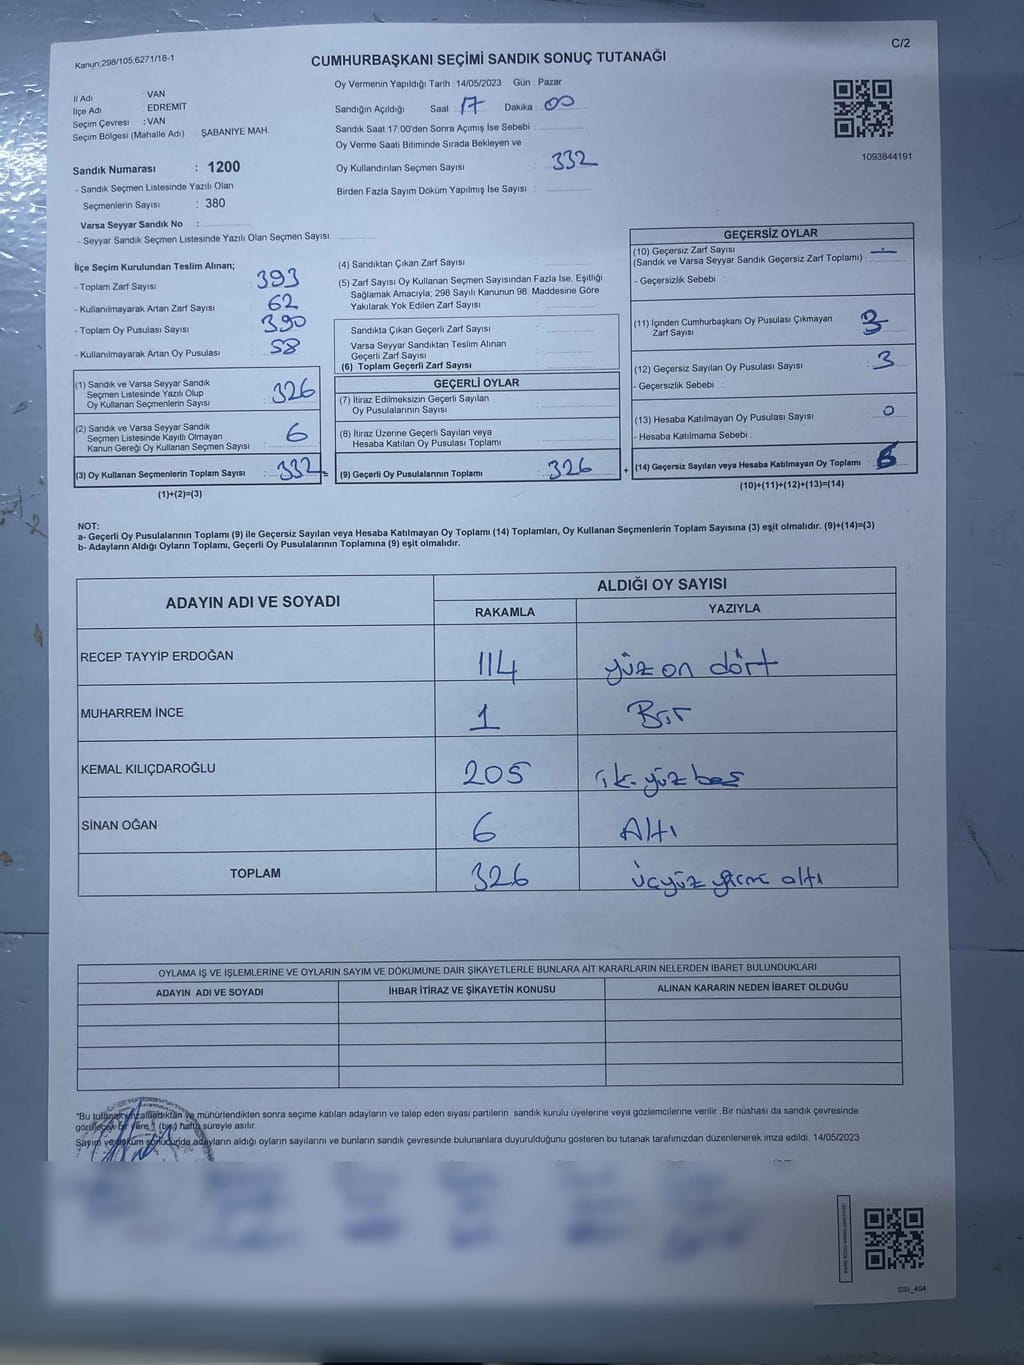 Kanun;298/105;6271/18-1
C/2
CUMHURBAŞKANI SEÇİMİ SANDIK SONUÇ TUTANAĞI
Oy Vermenin Yapıldığı Tarih : 14/05/2023 Gün : Pazar
İl Adı : VAN
İlçe Adı : EDREMIT
Seçim Çevresi : VAN
Seçim Bölgesi (Mahalle Adı) : ŞABANIYE MAH
Sandığın Açıldığı Saat : 17 Dakika : 00
Sandık Saat 17:00'den Sonra Açımış İse Sebebi :
Oy Verme Saati Bitiminde Sırada Bekleyen ve
Oy Kullandırılan Seçmen Sayısı : 332
Birden Fazla Sayım Döküm Yapılmış İse Sayısı :
1093844191
Sandık Numarası : 1200
- Sandık Seçmen Listesinde Yazılı Olan
Seçmenlerin Sayısı : 380
Varsa Seyyar Sandık No :
- Seyyar Sandık Seçmen Listesinde Yazılı Olan Seçmen Sayısı:
İlçe Seçim Kurulundan Teslim Alınan;
- Toplam Zarf Sayısı : 393
- Kullanılmayarak Artan Zarf Sayısı : 62
- Toplam Oy Pusulası Sayısı : 390
- Kullanılmayarak Artan Oy Pusulası : 58
(1) Sandık ve Varsa Seyyar Sandık
Seçmen Listesinde Yazılı Olup
Oy Kullanan Seçmenlerin Sayısı : 326
(2) Sandık ve Varsa Seyyar Sandık
Seçmen Listesinde Kayıtlı Olmayan
Kanun Gereği Oy Kullanan Seçmen Sayısı : 6
(3) Oy Kullanan Seçmenlerin Toplam Sayısı : 332
(1)+(2)=(3)
(4) Sandıktan Çıkan Zarf Sayısı :
(5) Zarf Sayısı Oy Kullanan Seçmen Sayısından Fazla İse, Eşitliği
Sağlamak Amacıyla; 298 Sayılı Kanunun 98. Maddesine Göre
Yakılarak Yok Edilen Zarf Sayısı :
Sandıkta Çıkan Geçerli Zarf Sayısı :
Varsa Seyyar Sandıktan Teslim Alınan
Geçerli Zarf Sayısı :
(6) Toplam Geçerli Zarf Sayısı :
GEÇERLİ OYLAR
(7) İtiraz Edilmeksizin Geçerli Sayılan
Oy Pusulalarının Sayısı :
(8) İtiraz Üzerine Geçerli Sayılan veya
Hesaba Katılan Oy Pusulası Toplamı :
(9) Geçerli Oy Pusulalarının Toplamı : 326
+
GEÇERSİZ OYLAR
(10) Geçersiz Zarf Sayısı
(Sandık ve Varsa Seyyar Sandık Geçersiz Zarf Toplamı) : —
- Geçersizlik Sebebi :
(11) İçinden Cumhurbaşkanı Oy Pusulası Çıkmayan
Zarf Sayısı : 3
(12) Geçersiz Sayılan Oy Pusulası Sayısı : 3
- Geçersizlik Sebebi :
(13) Hesaba Katılmayan Oy Pusulası Sayısı : 0
- Hesaba Katılmama Sebebi :
(14) Geçersiz Sayılan veya Hesaba Katılmayan Oy Toplamı : 6
(10)+(11)+(12)+(13)=(14)
NOT:
a- Geçerli Oy Pusulalarının Toplamı (9) ile Geçersiz Sayılan veya Hesaba Katılmayan Oy Toplamı (14) Toplamları, Oy Kullanan Seçmenlerin Toplam Sayısına (3) eşit olmalıdır. (9)+(14)=(3)
b- Adayların Aldığı Oyların Toplamı, Geçerli Oy Pusulalarının Toplamına (9) eşit olmalıdır.
ADAYIN ADI VE SOYADI
ALDIĞI OY SAYISI
RAKAMLA YAZIYLA
RECEP TAYYİP ERDOĞAN 114 yüz on dört
MUHARREM İNCE 1 Bir
KEMAL KILIÇDAROĞLU 205 iki yüz beş
SİNAN OĞAN 6 Altı
TOPLAM 326 üçyüz yirmi altı
OYLAMA İŞ VE İŞLEMLERINE VE OYLARIN SAYIM VE DÖKÜMÜNE DAİR ŞİKAYETLERLE BUNLARA AİT KARARLARIN NELERDEN İBARET BULUNDUKLARI
ADAYIN ADI VE SOYADI İHBAR İTİRAZ VE ŞİKAYETİN KONUSU ALINAN KARARIN NEDEN İBARET OLDUĞU
"Bu tutanak imzalandıktan ve mühürlendikten sonra seçime katılan adayların ve talep eden siyasi partilerin sandık kurulu üyelerine veya gözlemcilerine verilir. Bir nüshası da sandık çevresinde
görülecek bir yere 1 (bir) hafta süreyle asılır.
Sayım ve döküm sonucunda adayların aldığı oyların sayılarını ve bunların sandık çevresinde bulunanlara duyurulduğunu gösteren bu tutanak tarafımızdan düzenlenerek imza edildi. 14/05/2023
SSI_404